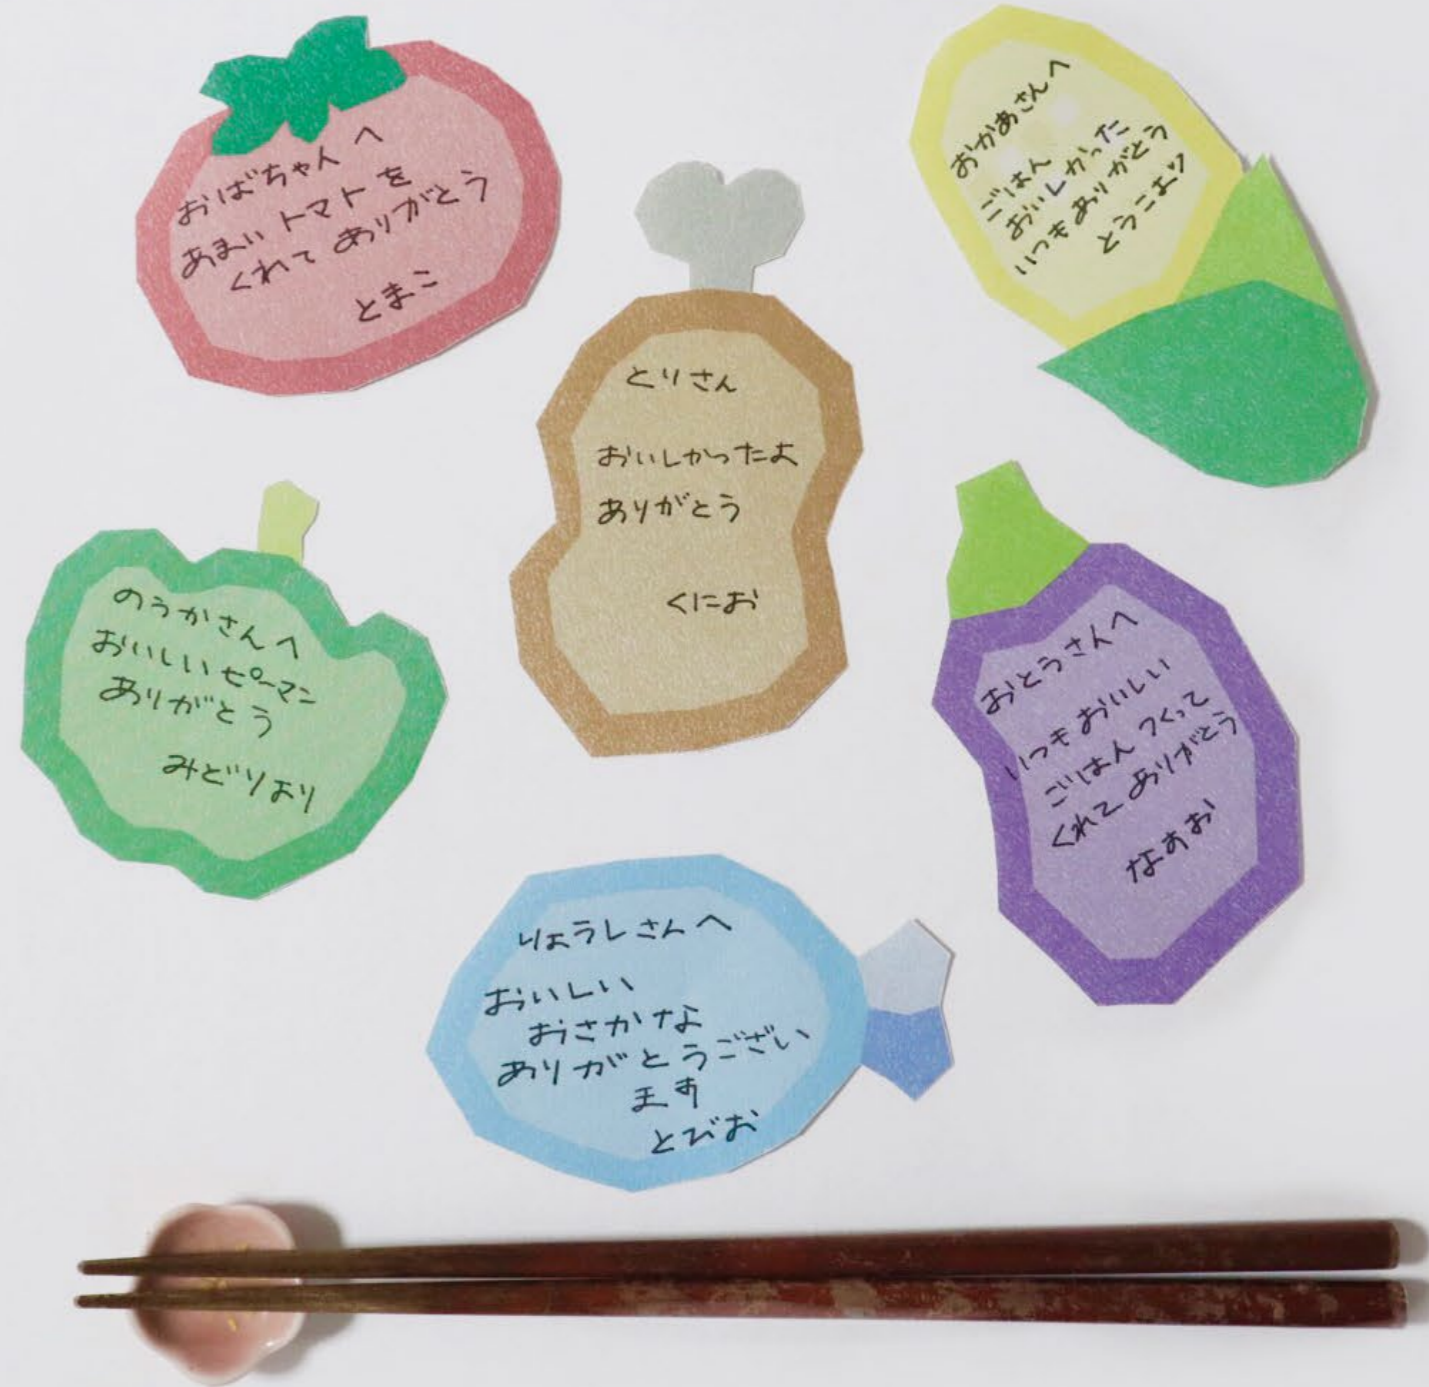 おばちゃんへ
あまいトマトを
くれてありがとう
とまこ
とりさん
おいしかったよ
ありがとう
くにお
おかあさんへ
ごはん
おいしかった
いつもありがとう
とうこより
のうかさんへ
おいしいピーマン
ありがとう
みどりより
おとうさんへ
いつもおいしい
ごはんつくって
くれてありがとう
なすお
りょうしさんへ
おいしい
おさかな
ありがとうござい
ます
とびお